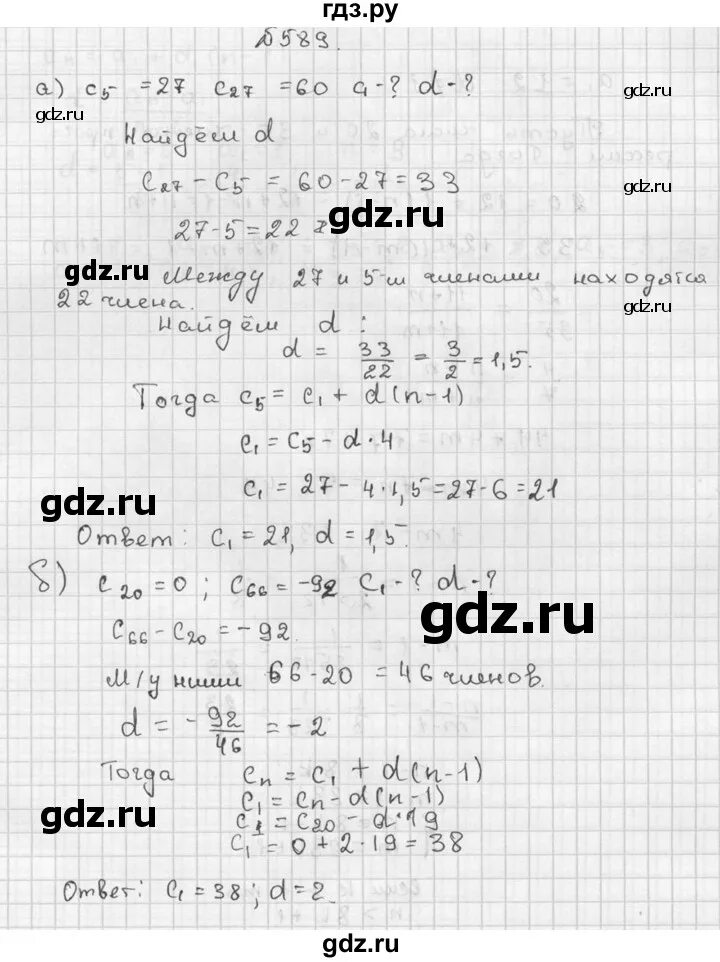 гдз.ру
№589.
а) c₅ = 27 c₂₇ = 60 c₁-? d-?
gdz.ru
gdz.ru
Найдём d
c₂₇ - c₅ = 60 - 27 = 33
gdz.ru
gdz.ru
27-5 = 22
gdz.ru
Между 27 и 5-м членами находятся
22 члена.
gdz.ru
Найдём d:
d = 33/22 = 3/2 = 1,5.
gdz.ru
Тогда c₅ = c₁ + d(n-1)
c₁ = c₅ - d·4
gdz.ru
c₁ = 27 - 4·1,5 = 27-6 = 21
gdz.ru
Ответ: c₁ = 21, d = 1,5.
б) c₂₀ = 0; c₆₆ = -92 c₁-? d-?
gdz.ru
c₆₆ - c₂₀ = -92.
М/у ними 66-20 = 46 членов.
gdz.ru
d = -92/46 = -2
Тогда cₙ = c₁ + d(n-1)
c₁ = cₙ - d(n-1)
gdz.ru
gdz.ru
c₁ = c₂₀ - d·19
c₁ = 0 + 2·19 = 38
Ответ: c₁ = 38; d = 2.
gdz.ru
gdz.ru